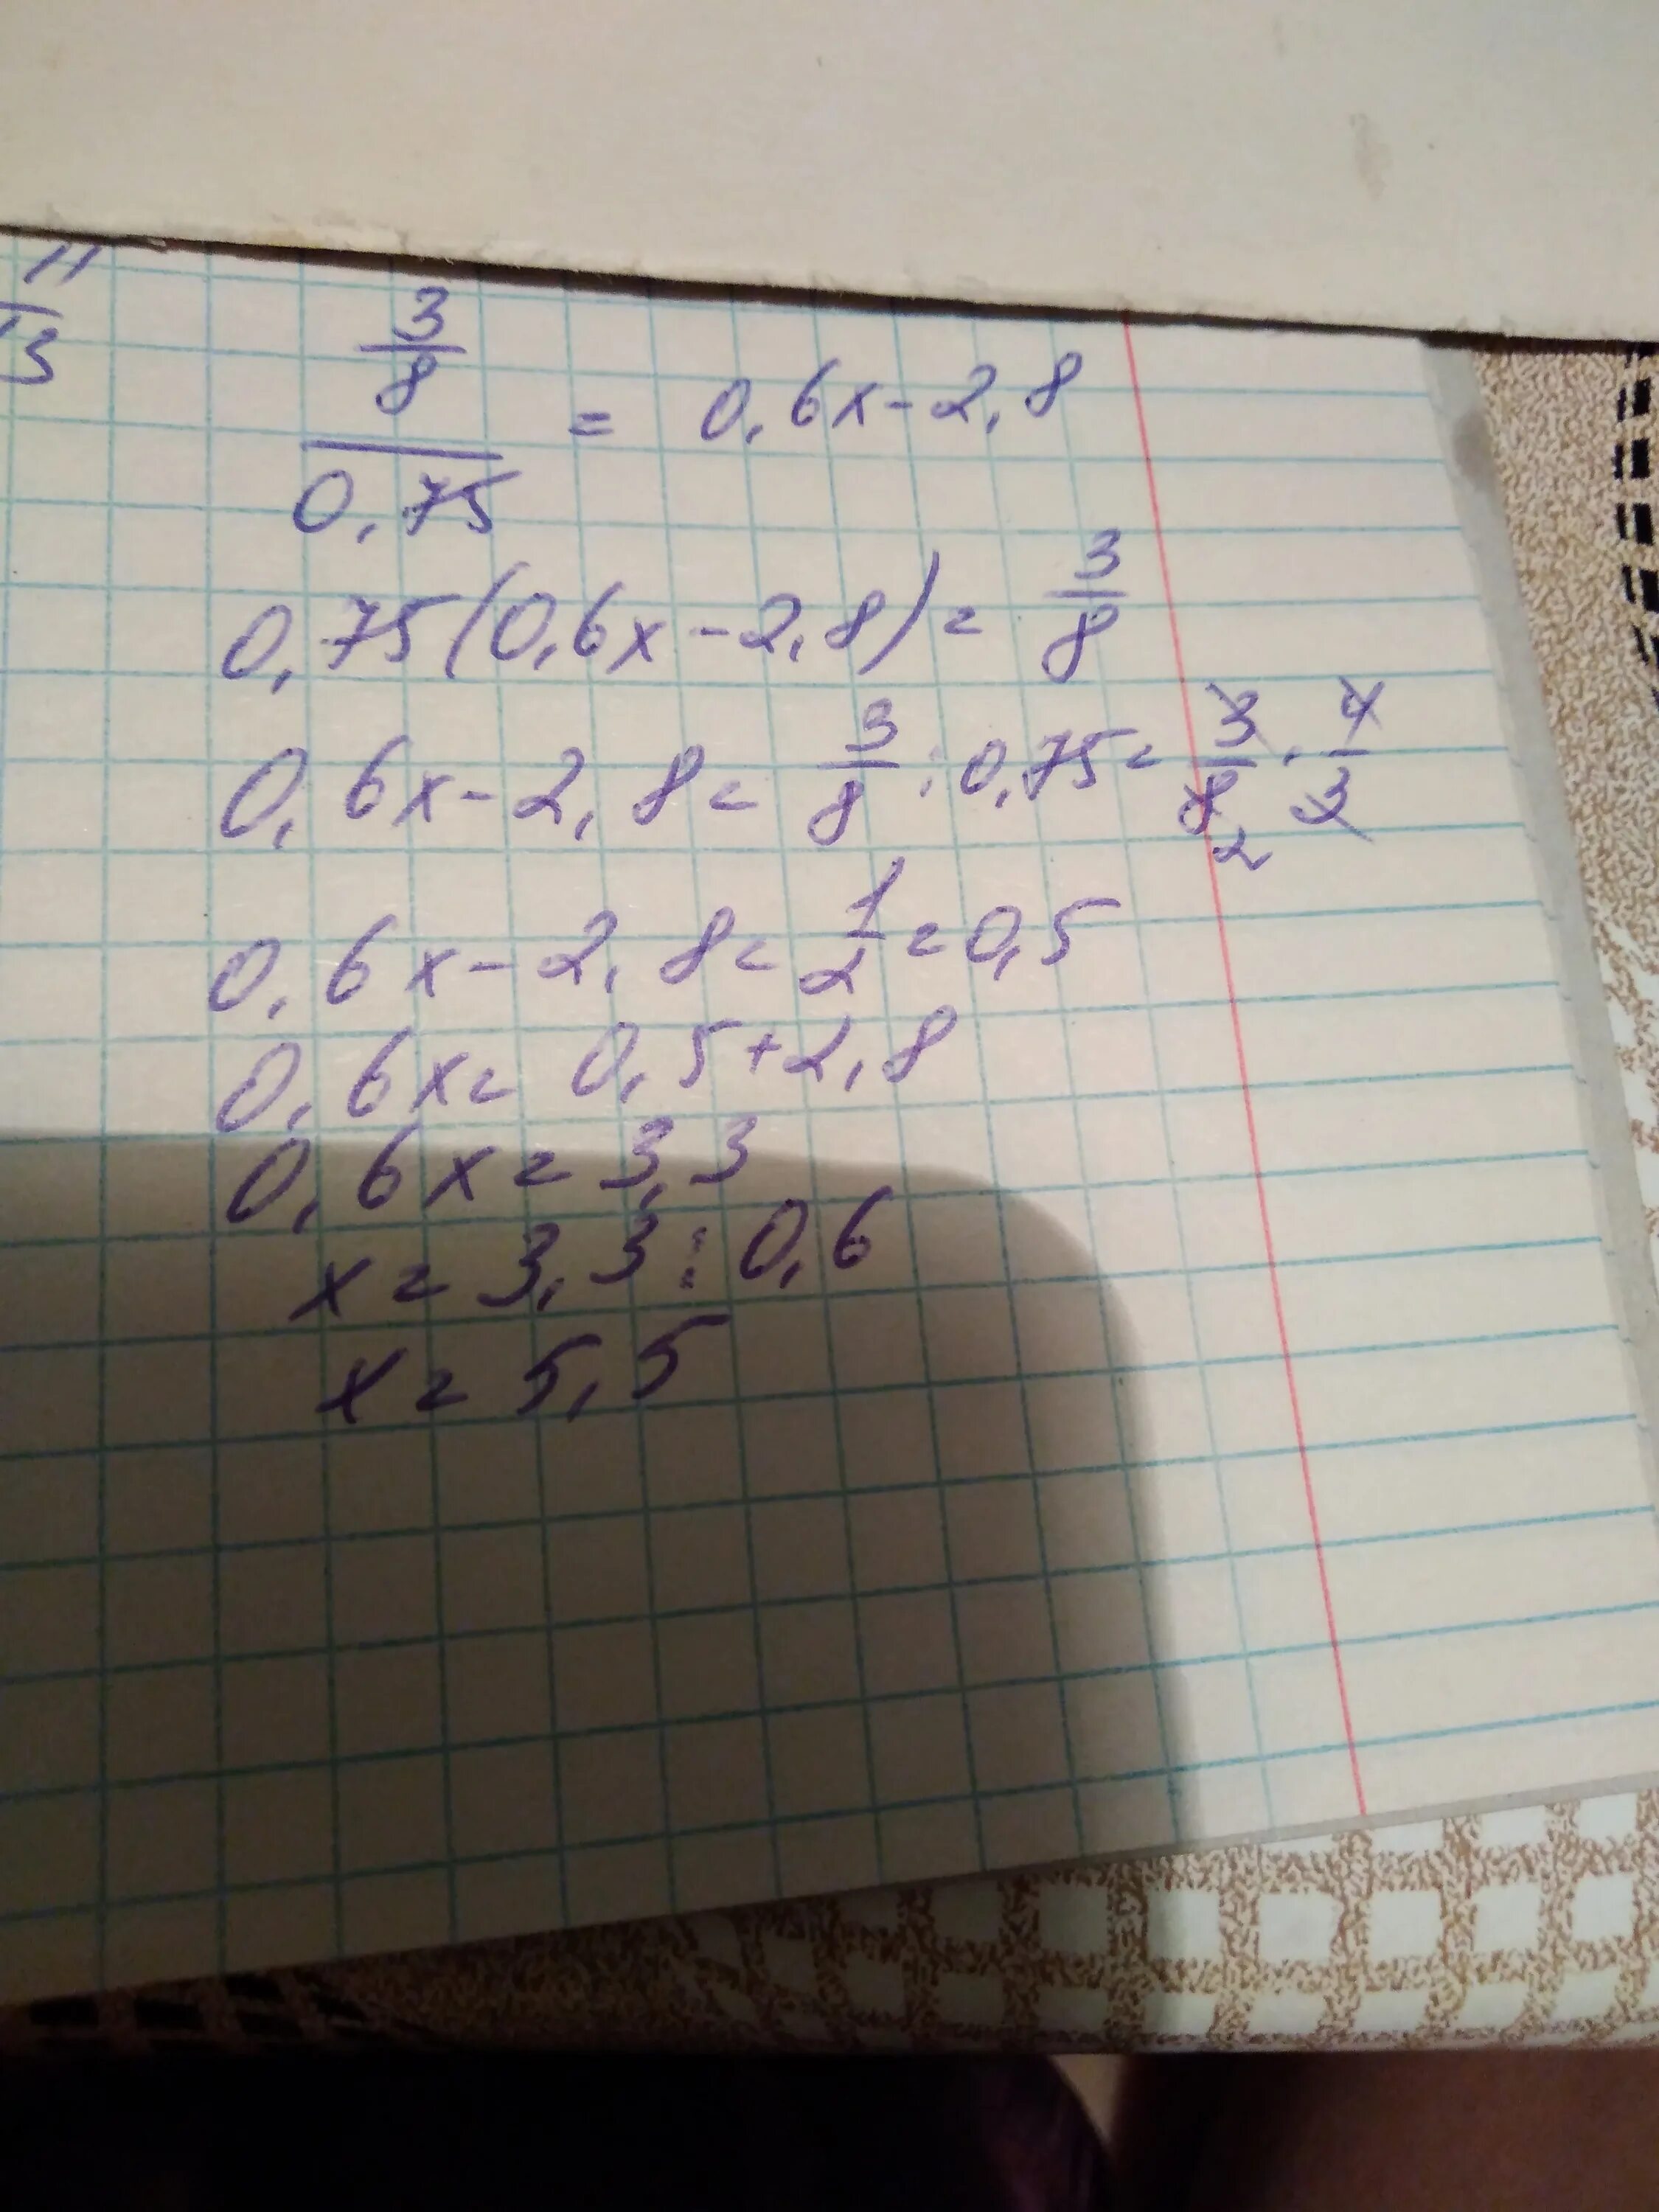 11/13
3/8 / 0,75 = 0,6x-2,8
0,75(0,6x-2,8)=3/8
0,6x-2,8=3/8:0,75=3/8·4/3
2
0,6x-2,8=1/2=0,5
0,6x=0,5+2,8
0,6x=3,3
x=3,3:0,6
x=5,5